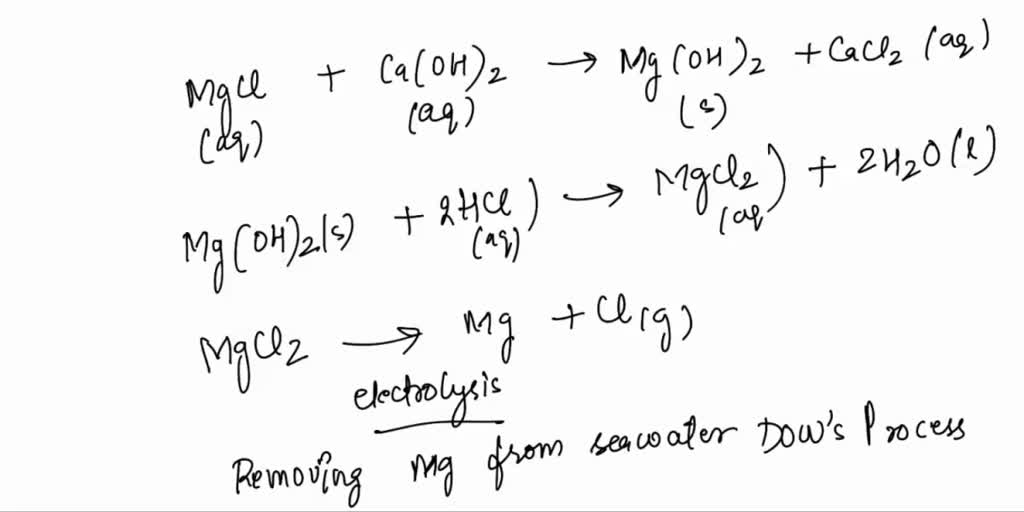 MgCl + Ca(OH)2 → Mg(OH)2 + CaCl2 (aq)
(aq) (aq) (s)
Mg(OH)2(s) + 2HCl) → MgCl2) + 2H2O(l)
(aq) (aq
MgCl2 → Mg + Cl(g)
electrolysis
Removing Mg from seawater Dow's Process